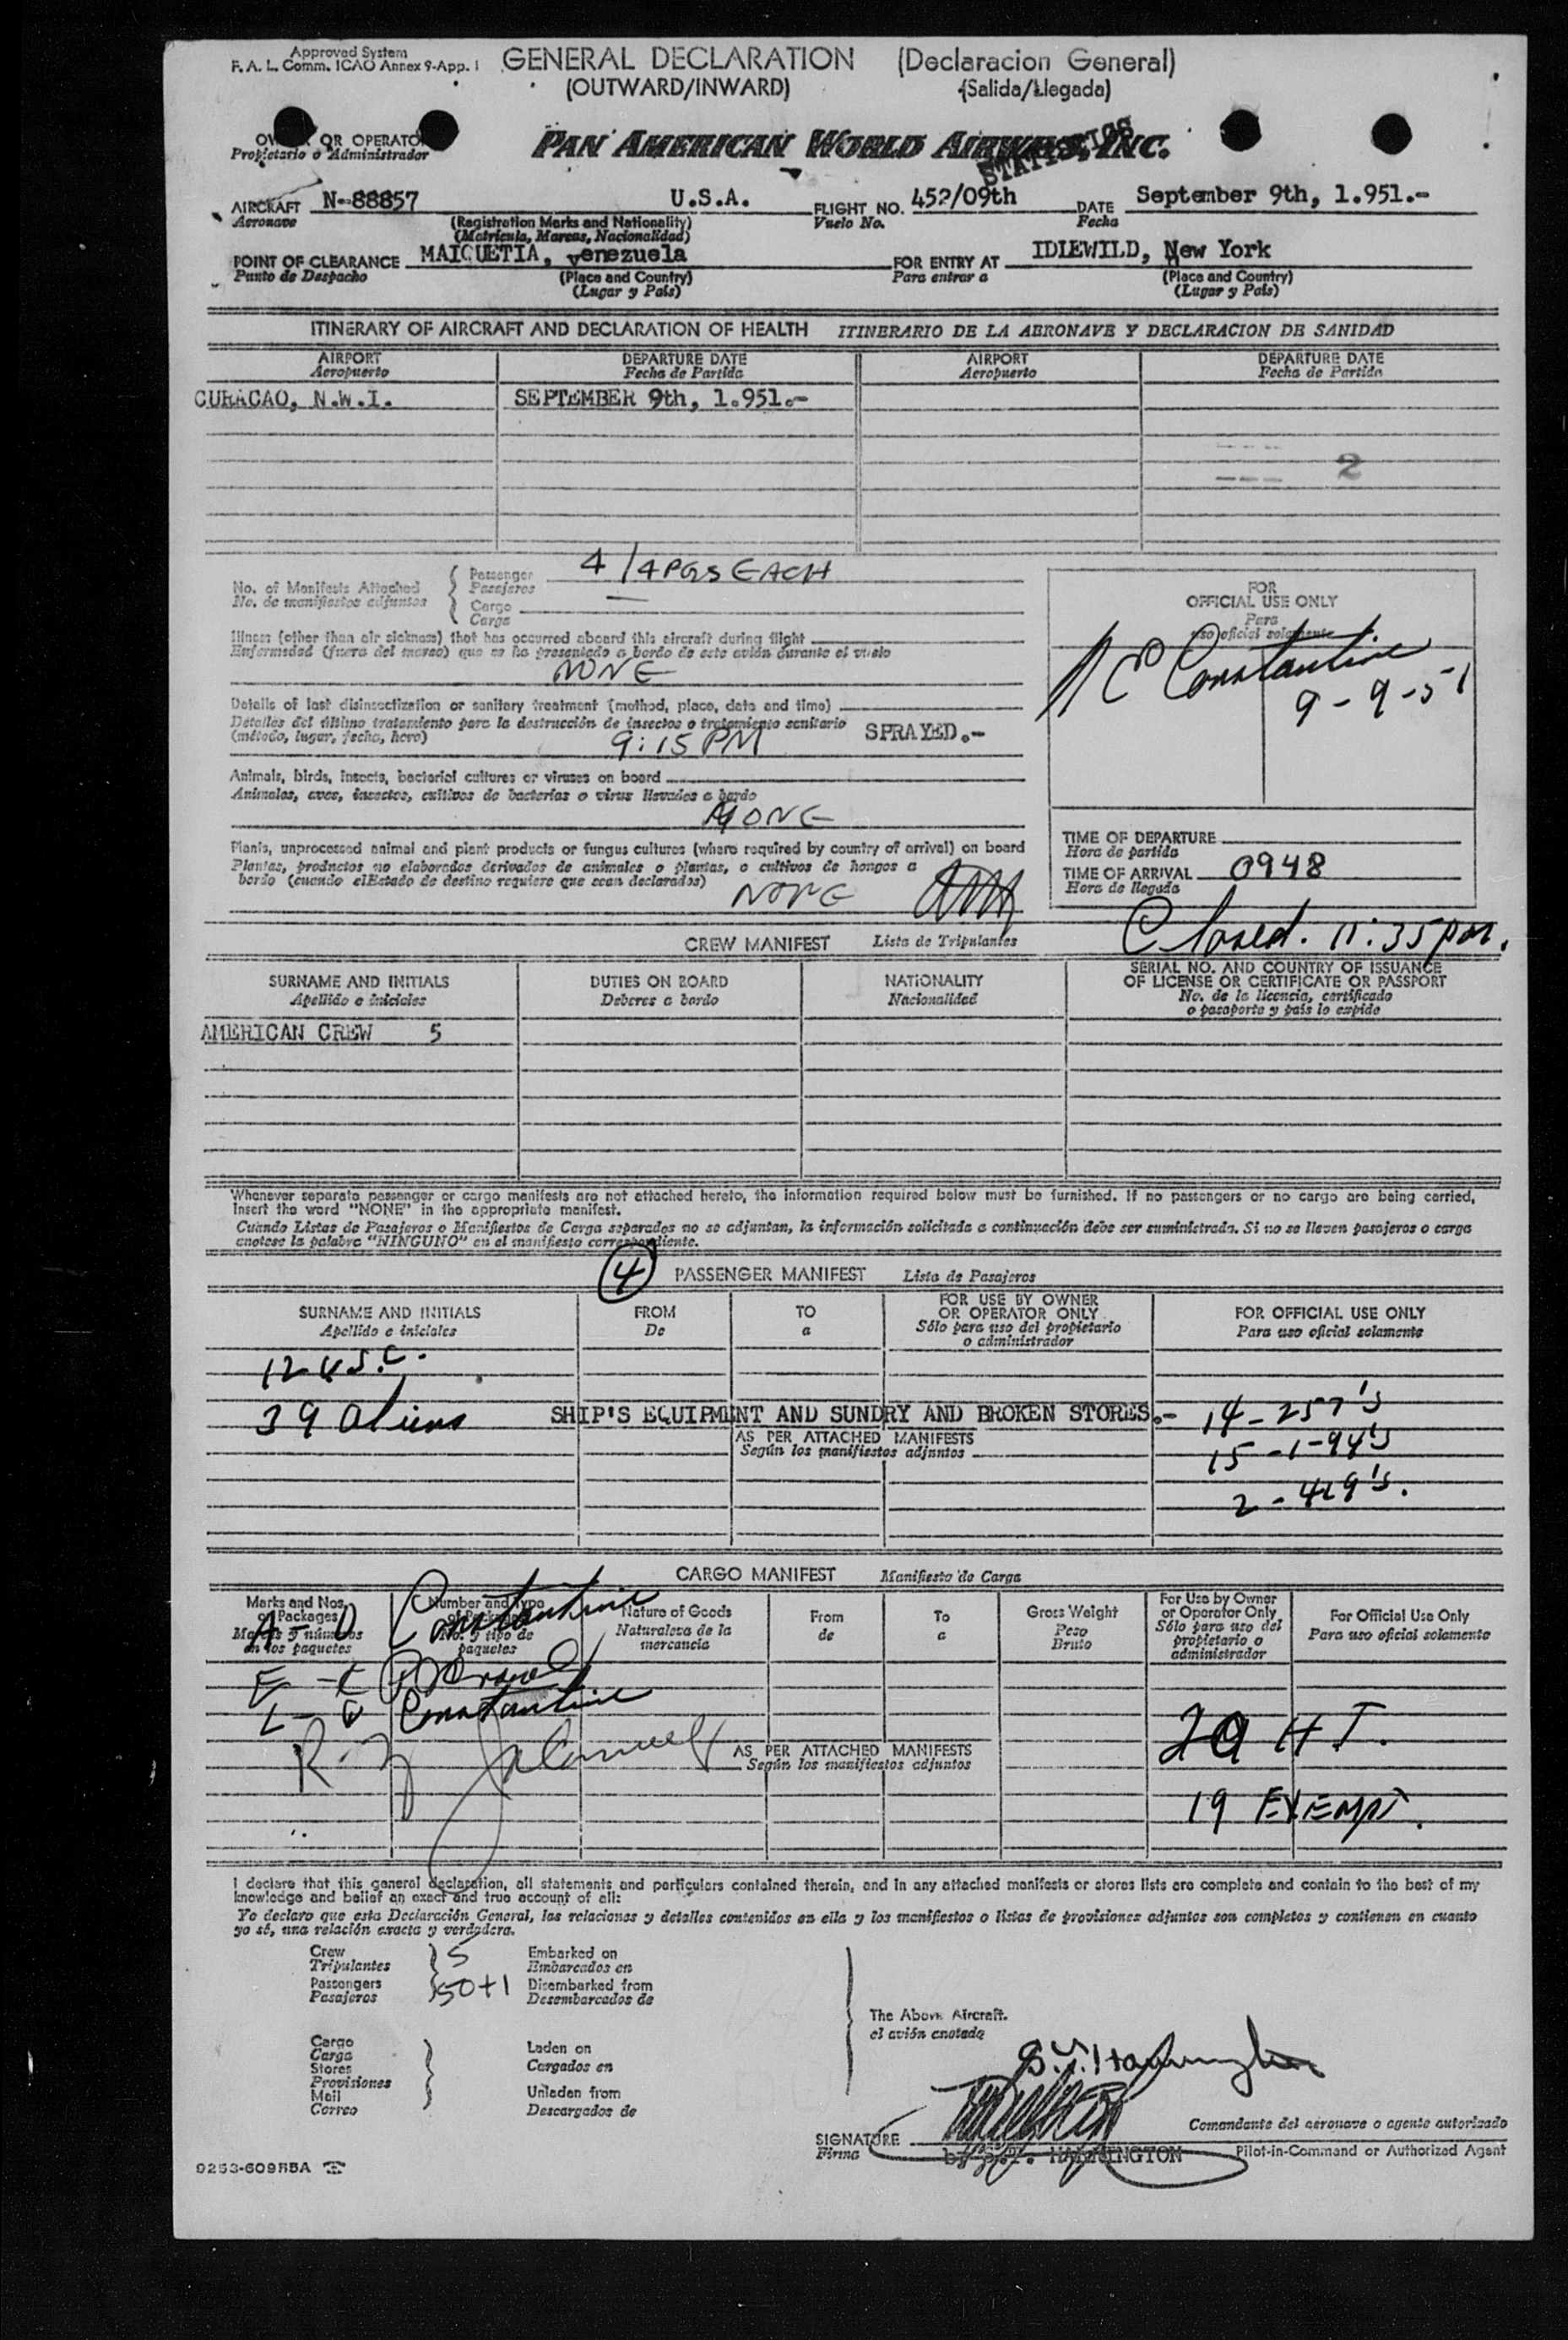 Approved System
F. A. L. Comm. ICAO Annex 9-App. I
GENERAL DECLARATION (Declaracion General)
(OUTWARD/INWARD) (Salida/Llegada)
OR OPERATOR
Propietario o Administrador
PAN AMERICAN WORLD AIRWAYS, INC.
STATISTICS
AIRCRAFT N-88857 U.S.A. FLIGHT NO. 452/09th DATE September 9th, 1.951.-
Aeronave (Registration Marks and Nationality) Vuelo No. Fecha
(Matrícula, Marcas, Nacionalidad)
POINT OF CLEARANCE MAIQUETIA, venezuela FOR ENTRY AT IDLEWILD, New York
Punto de Despacho (Place and Country) Para entrar a (Place and Country)
(Lugar y País) (Lugar y País)
ITINERARY OF AIRCRAFT AND DECLARATION OF HEALTH ITINERARIO DE LA AERONAVE Y DECLARACION DE SANIDAD
AIRPORT DEPARTURE DATE AIRPORT DEPARTURE DATE
Aeropuerto Fecha de Partida Aeropuerto Fecha de Partida
CURACAO, N.W.I. SEPTEMBER 9th, 1.951.-
2
No. of Manifests Attached Passenger 4 / 4 PGS EACH
No. de manifiestos adjuntos Pasajeros
Cargo
Carga
Illness (other than air sickness) that has occurred aboard this aircraft during flight
Enfermedad (fuera del mareo) que se ha presentado a bordo de este avión durante el vuelo
NONE
Details of last disinsectization or sanitary treatment (method, place, date and time)
Detalles del último tratamiento para la destrucción de insectos o tratamiento sanitario
(método, lugar, fecha, hora) 9:15 PM SPRAYED.-
Animals, birds, insects, bacterial cultures or viruses on board
Animales, aves, insectos, cultivos de bacterias o virus llevados a bordo
NONE
Plants, unprocessed animal and plant products or fungus cultures (where required by country of arrival) on board
Plantas, productos no elaborados derivados de animales o plantas, o cultivos de hongos a
bordo (cuando el Estado de destino requiere que sean declarados)
NONE
FOR
OFFICIAL USE ONLY
Para
uso oficial solamente
Constantine
9-9-51
TIME OF DEPARTURE
Hora de partida
TIME OF ARRIVAL 0948
Hora de llegada
Closed. 11:35 pm.
CREW MANIFEST Lista de Tripulantes
SURNAME AND INITIALS DUTIES ON BOARD NATIONALITY SERIAL NO. AND COUNTRY OF ISSUANCE
OF LICENSE OR CERTIFICATE OR PASSPORT
Apellido e iniciales Deberes a bordo Nacionalidad No. de la licencia, certificado
o pasaporte y país lo expide
AMERICAN CREW 5
Whenever separate passenger or cargo manifests are not attached hereto, the information required below must be furnished. If no passengers or no cargo are being carried,
insert the word "NONE" in the appropriate manifest.
Cuando Listas de Pasajeros o Manifiestos de Carga separados no se adjuntan, la información solicitada a continuación debe ser suministrada. Si no se llevan pasajeros o carga
anotese la palabra "NINGUNO" en el manifiesto correspondiente.
4 PASSENGER MANIFEST Lista de Pasajeros
SURNAME AND INITIALS FROM TO FOR USE BY OWNER
OR OPERATOR ONLY FOR OFFICIAL USE ONLY
Apellido e iniciales De a Sólo para uso del propietario
o administrador Para uso oficial solamente
12 U.S.C.
39 aliens SHIP'S EQUIPMENT AND SUNDRY AND BROKEN STORES.- 14 - 257's
AS PER ATTACHED MANIFESTS
Según los manifiestos adjuntos 15 - I-94's
2 - 429's.
CARGO MANIFEST Manifiesto de Carga
Marks and Nos. Number and Type Nature of Goods From To Gross Weight For Use by Owner
or Operator Only For Official Use Only
of Packages of Packages Naturaleza de la
mercancía de a Peso
Bruto Sólo para uso del
propietario o
administrador Para uso oficial solamente
Marcas y números
en los paquetes No. y tipo de
paquetes
A - D Constantine
E - K
L - Q Constantine
R - Z
AS PER ATTACHED MANIFESTS
Según los manifiestos adjuntos
20 H.T.
19 EXEMPT.
I declare that this general declaration, all statements and particulars contained therein, and in any attached manifests or stores lists are complete and contain to the best of my
knowledge and belief an exact and true account of all:
Yo declaro que esta Declaración General, las relaciones y detalles contenidos en ella y los manifiestos o listas de provisiones adjuntos son completos y contienen en cuanto
yo sé, una relación exacta y verdadera.
Crew 5 Embarked on
Tripulantes Embarcados en
Passengers 50+1 Disembarked from
Pasajeros Desembarcados de
The Above Aircraft.
el avión anotado
Cargo
Carga Laden on
Stores Cargados en
Provisiones
Mail Unladen from
Correo Descargados de
Comandante del aeronave o agente autorizado
SIGNATURE HARRINGTON Pilot-in-Command or Authorized Agent
Firma
9253-609RBA